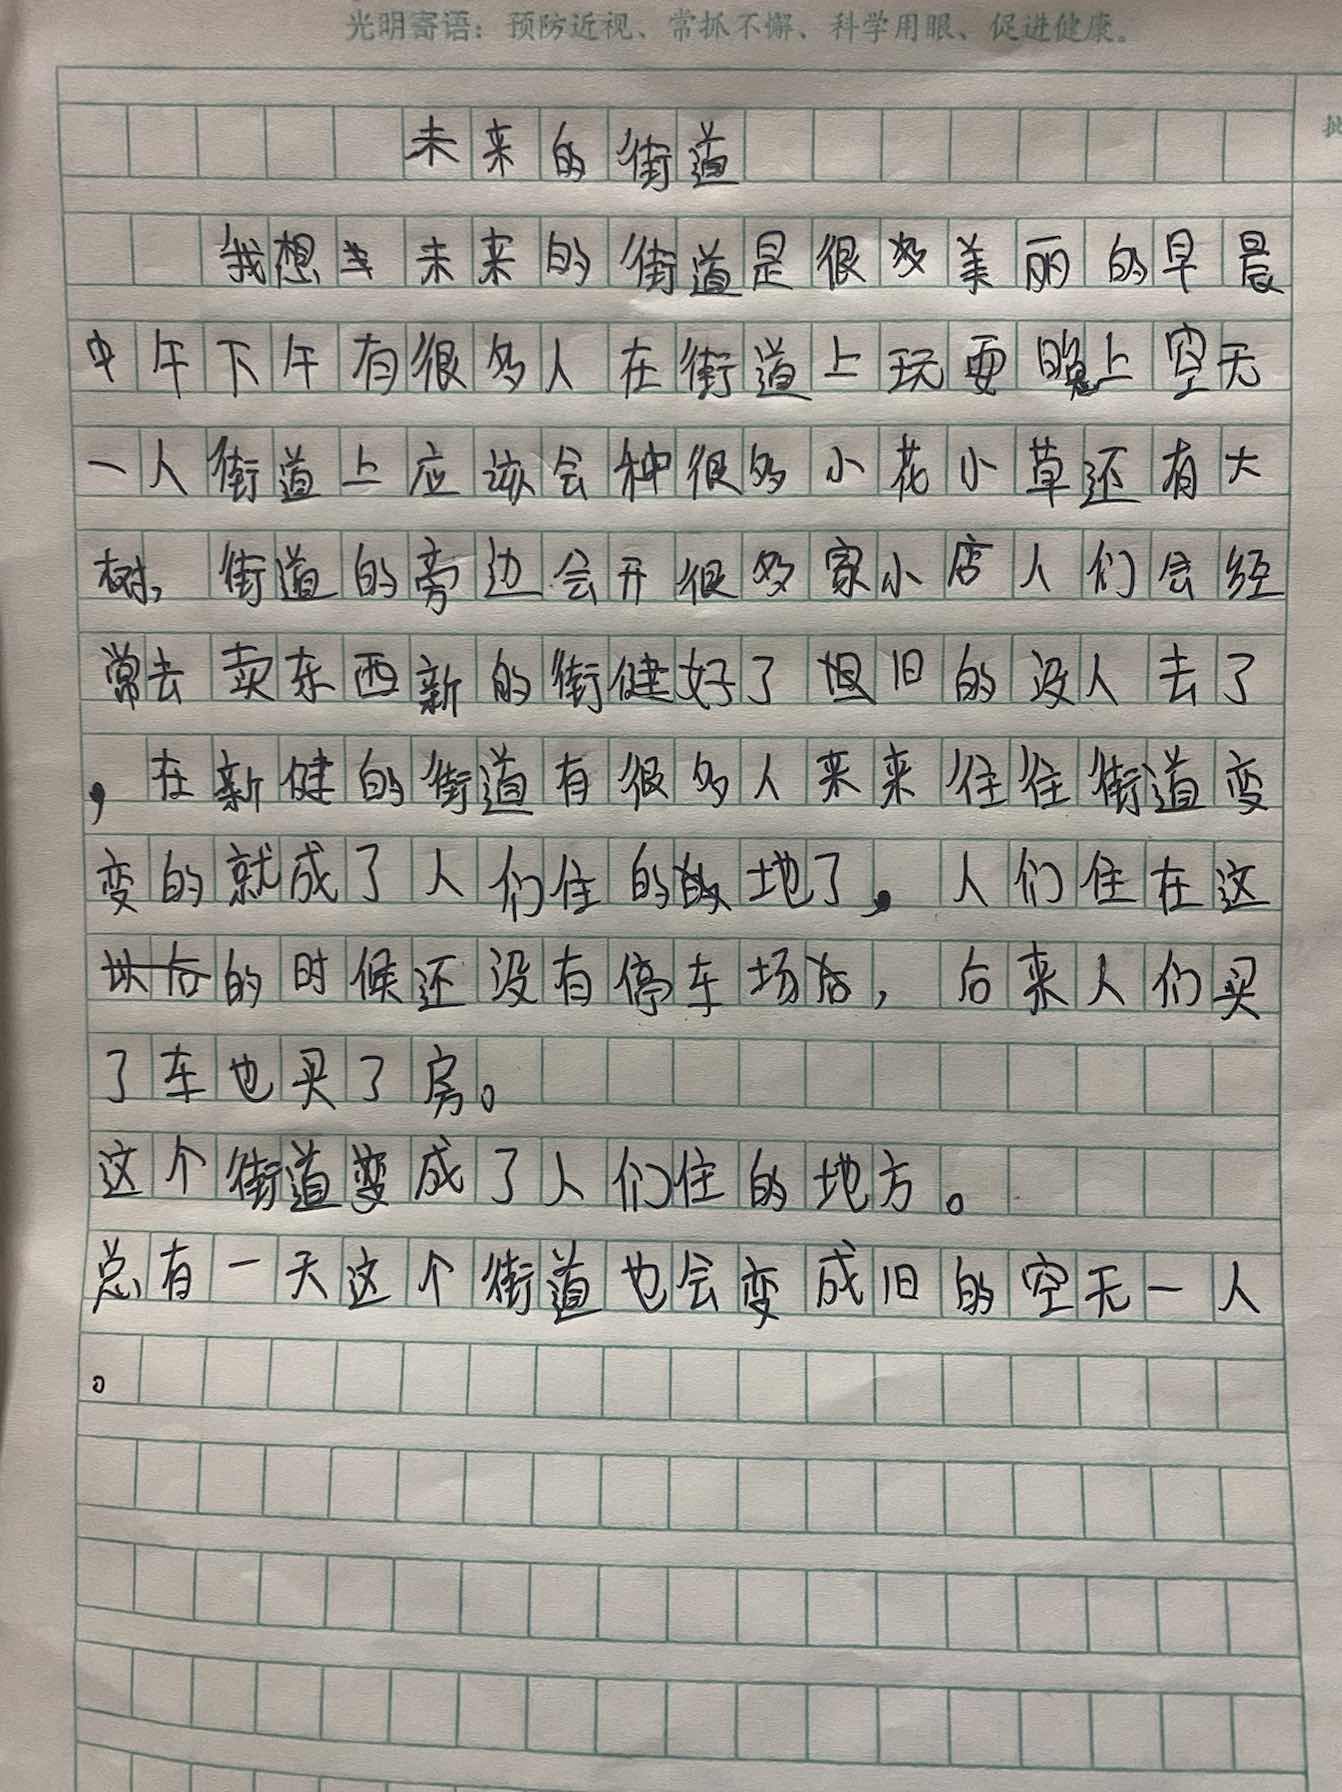 光明寄语：预防近视、常抓不懈、科学用眼、促进健康。
未来的街道
我想未来的街道是很多美丽的早晨
中午下午有很多人在街道上玩耍晚上空无
一人街道上应该会种很多小花小草还有大
树，街道的旁边会开很多家小店人们会经
常去卖东西新的街健好了但旧的没人去了
，在新健的街道有很多人来来住住街道变
变的就成了人们住的地了，人们住在这
以后的时候还没有停车场后，后来人们买
了车也买了房。
这个街道变成了人们住的地方。
总有一天这个街道也会变成旧的空无一人
。